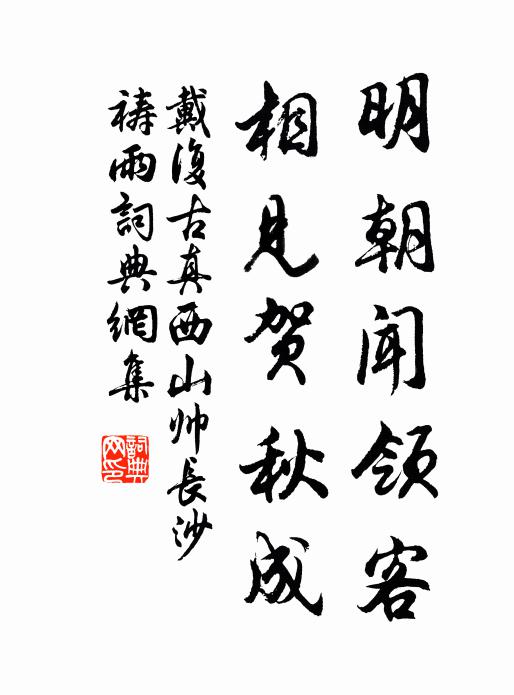 明朝闻领客
相见贺秋成
戴復古真西山帅長沙
祷雨詞典網集
詞典网印